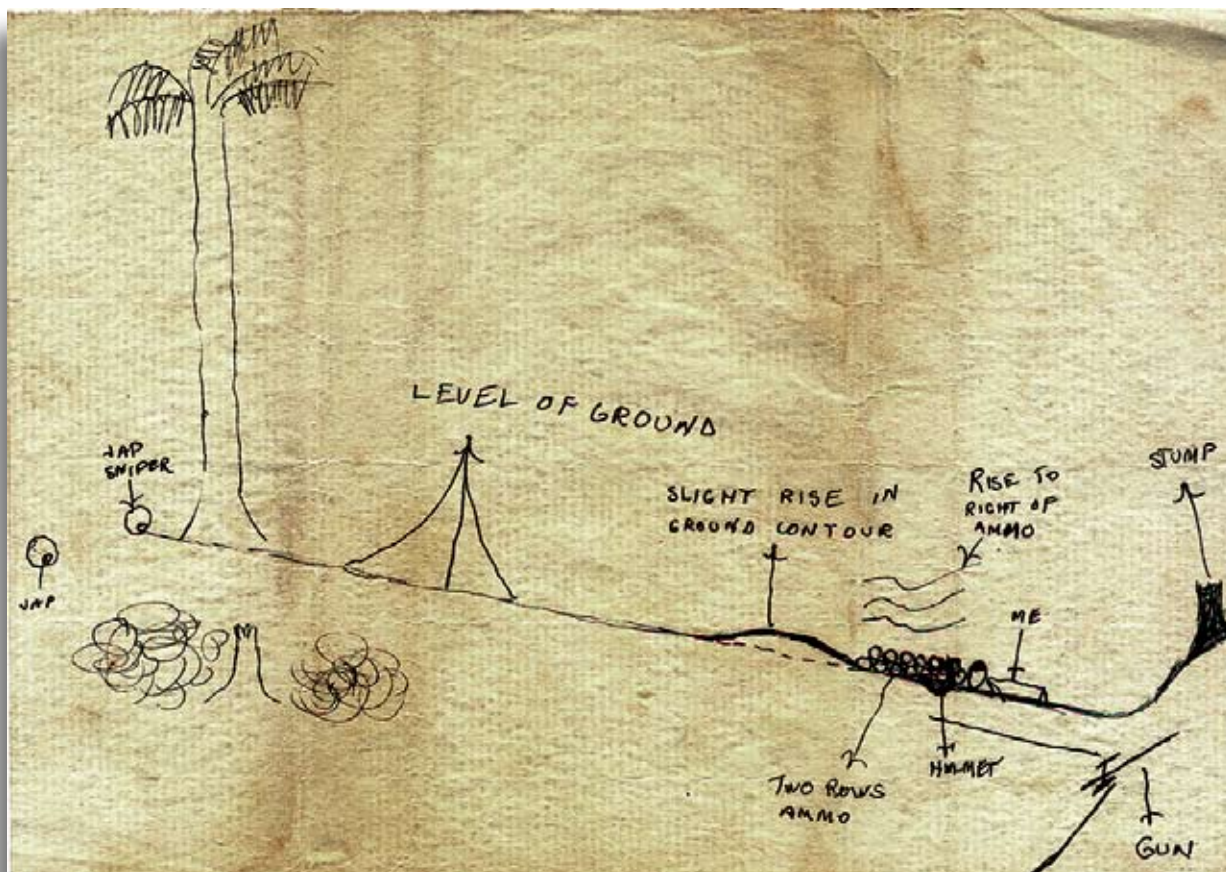 LEVEL OF GROUND
JAP
SNIPER
JAP
SLIGHT RISE IN
GROUND CONTOUR
RISE TO
RIGHT OF
AMMO
STUMP
ME
TWO ROWS
AMMO
HELMET
GUN